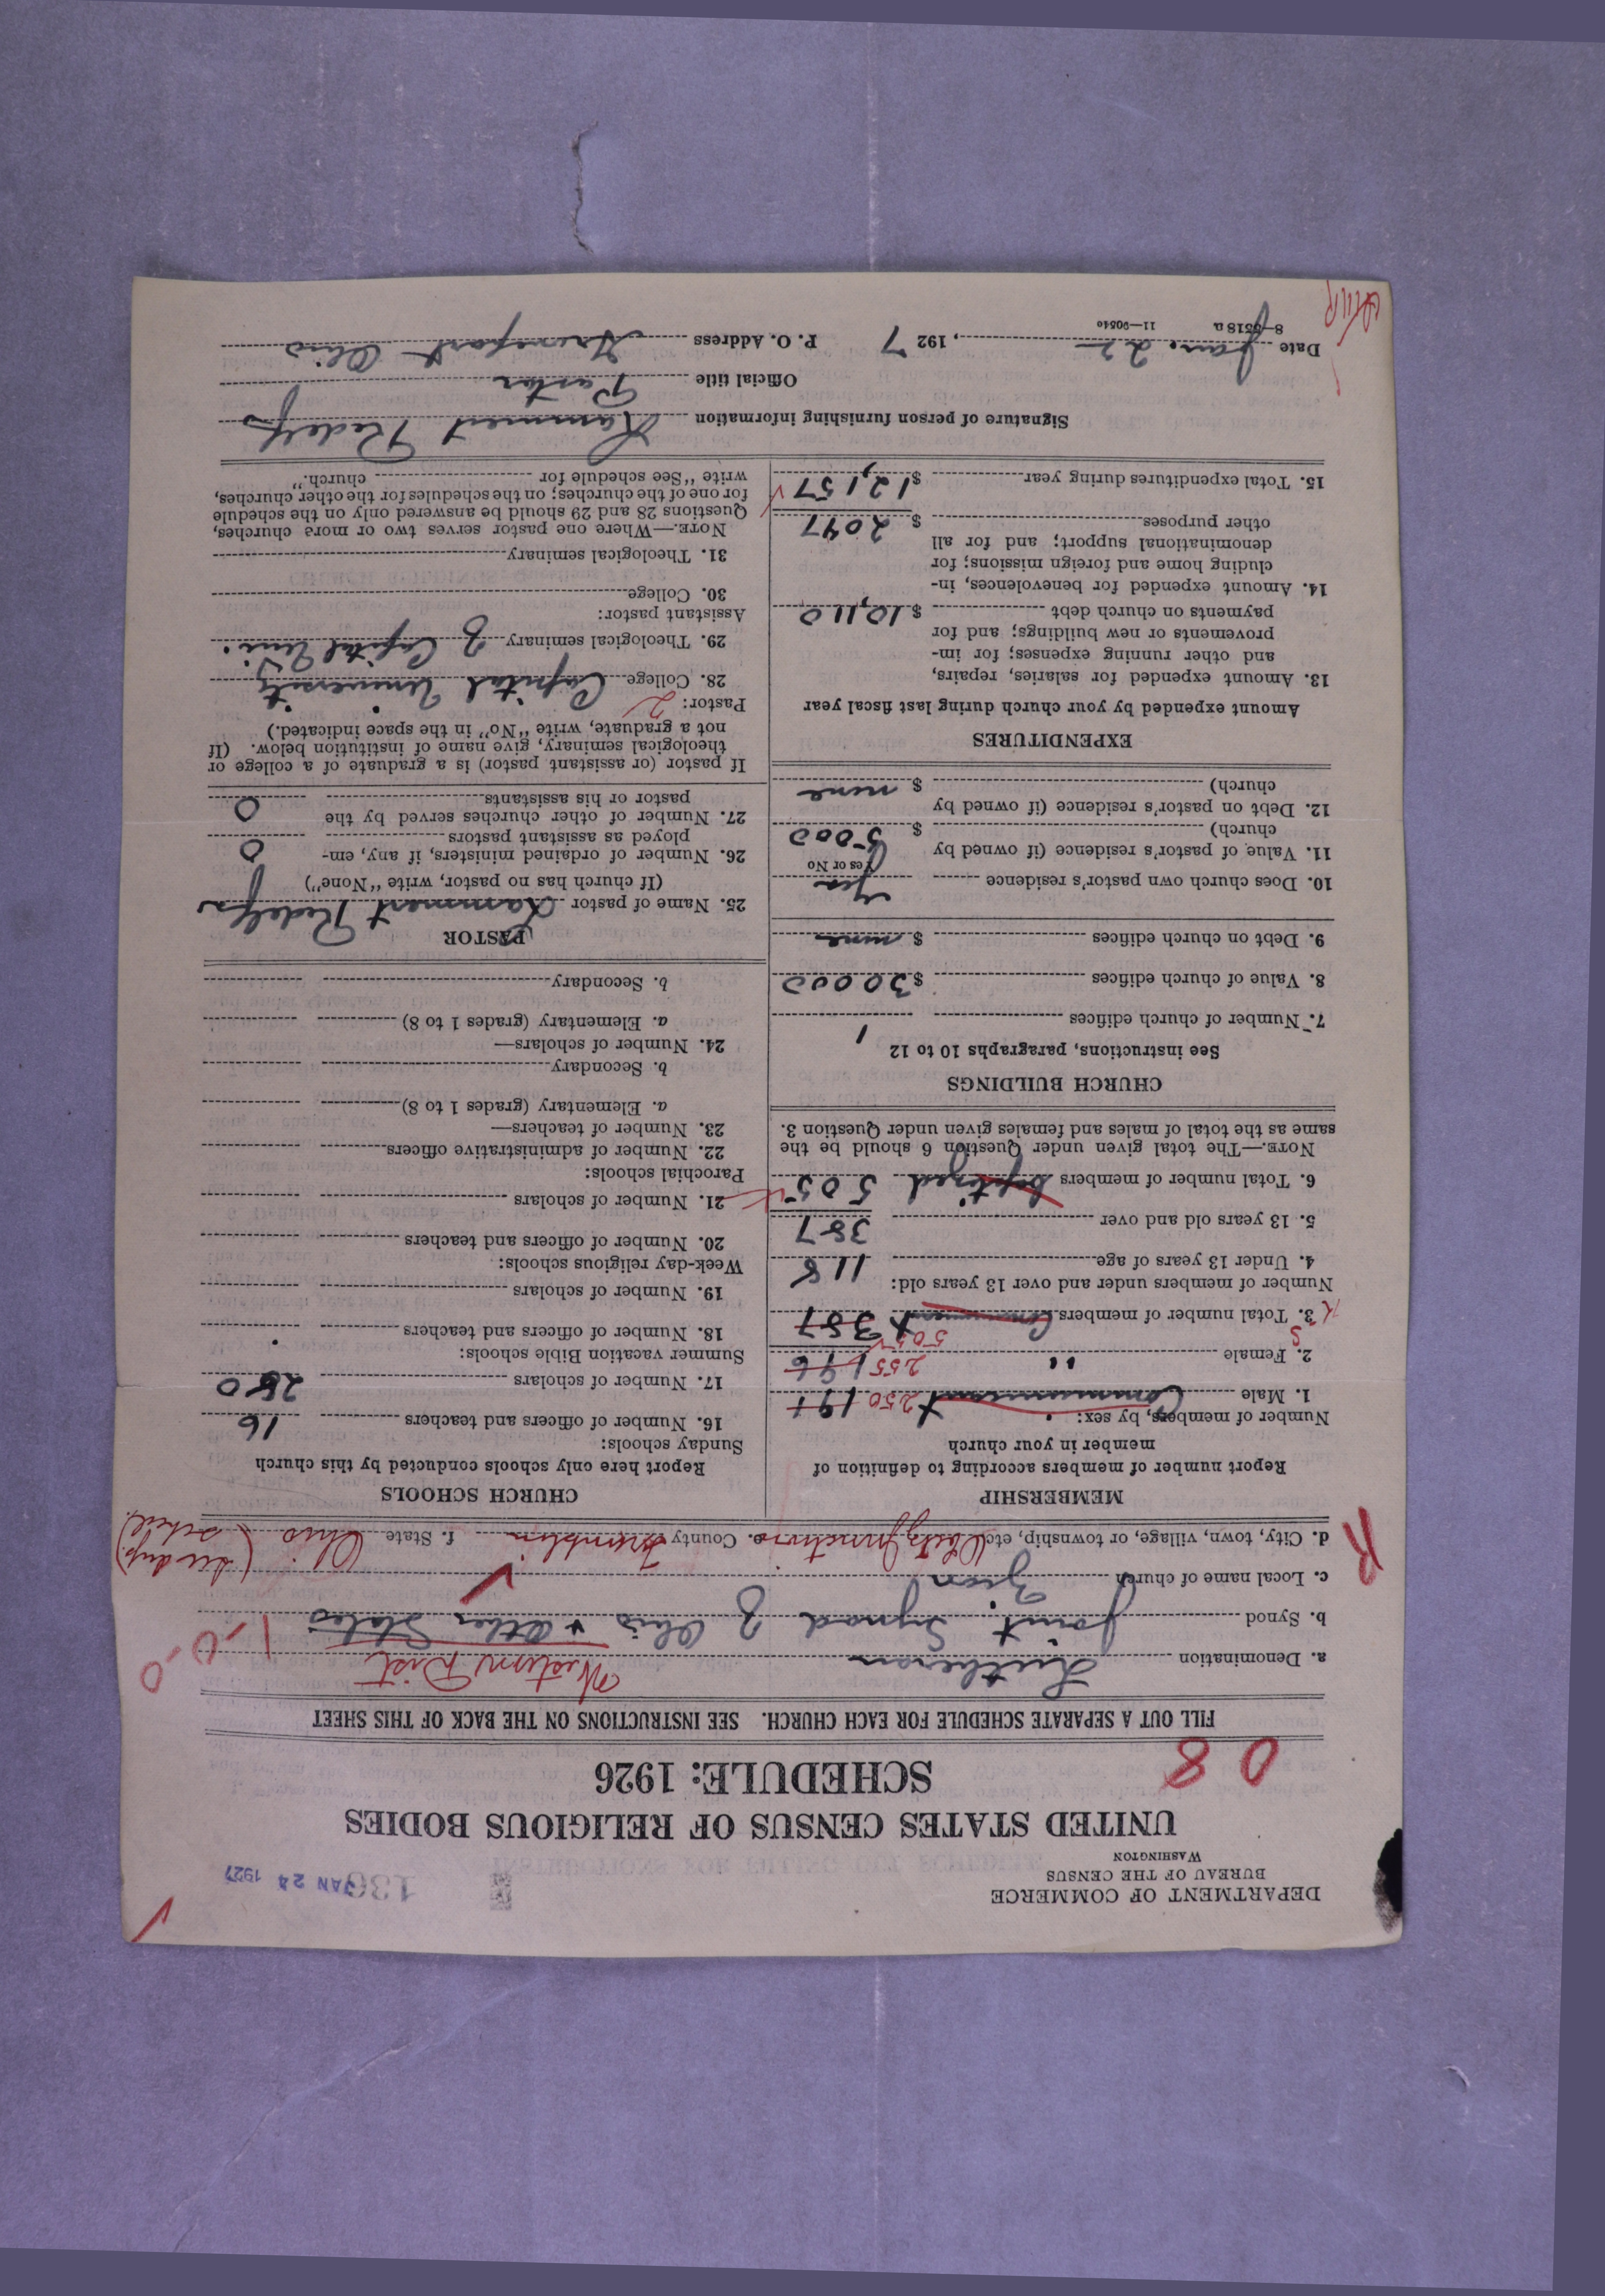 DEPARTMENT OF COMMERCE
BUREAU OF THE CENSUS
WASHINGTON
JAN 24 1927
UNITED STATES CENSUS OF RELIGIOUS BODIES
SCHEDULE: 1926
0 8
FILL OUT A SEPARATE SCHEDULE FOR EACH CHURCH. SEE INSTRUCTIONS ON THE BACK OF THIS SHEET
a. Denomination Lutheran Western Dist 1-0-0
b. Synod Joint Synod of Ohio & Other States
c. Local name of church Zion
d. City, town, village, or township, etc. Junction e. County f. State Ohio
R
MEMBERSHIP
Report number of members according to definition of
member in your church
Number of members, by sex:
1. Male Communicant 250 191
2. Female " 255 196
505
3. Total number of members Communicant 387
Number of members under and over 13 years old:
4. Under 13 years of age 118
5. 13 years old and over 387
6. Total number of members baptized 505
NOTE.—The total given under Question 6 should be the
same as the total of males and females given under Question 3.
CHURCH BUILDINGS
See instructions, paragraphs 10 to 12
7. Number of church edifices 1
8. Value of church edifices $30000
9. Debt on church edifices $ none
10. Does church own pastor's residence yes
Yes or No
11. Value of pastor's residence (if owned by
church) $ 5000
12. Debt on pastor's residence (if owned by
church) $ none
EXPENDITURES
Amount expended by your church during last fiscal year
13. Amount expended for salaries, repairs,
and other running expenses; for im-
provements or new buildings; and for
payments on church debt $ 10,110
14. Amount expended for benevolences, in-
cluding home and foreign missions; for
denominational support; and for all
other purposes $ 2047
15. Total expenditures during year $ 12,157
CHURCH SCHOOLS
Report here only schools conducted by this church
Sunday schools:
16. Number of officers and teachers 16
17. Number of scholars 250
Summer vacation Bible schools:
18. Number of officers and teachers
19. Number of scholars
Week-day religious schools:
20. Number of officers and teachers
21. Number of scholars
Parochial schools:
22. Number of administrative officers
23. Number of teachers—
a. Elementary (grades 1 to 8)
b. Secondary
24. Number of scholars—
a. Elementary (grades 1 to 8)
b. Secondary
PASTOR
25. Name of pastor Lammert Redelfs
(If church has no pastor, write "None")
26. Number of ordained ministers, if any, em-
ployed as assistant pastors 0
27. Number of other churches served by the
pastor or his assistants 0
If pastor (or assistant pastor) is a graduate of a college or
theological seminary, give name of institution below. (If
not a graduate, write "No" in the space indicated.)
Pastor: 2
28. College Capital University
29. Theological seminary of Capital Uni.
Assistant pastor:
30. College
31. Theological seminary
NOTE.—Where one pastor serves two or more churches,
Questions 28 and 29 should be answered only on the schedule
for one of the churches; on the schedules for the other churches,
write "See schedule for church."
Signature of person furnishing information Lammert Redelfs
Official title Pastor
Date Jan. 22, 1927 P. O. Address Ohio
8—5518 a 11—9054